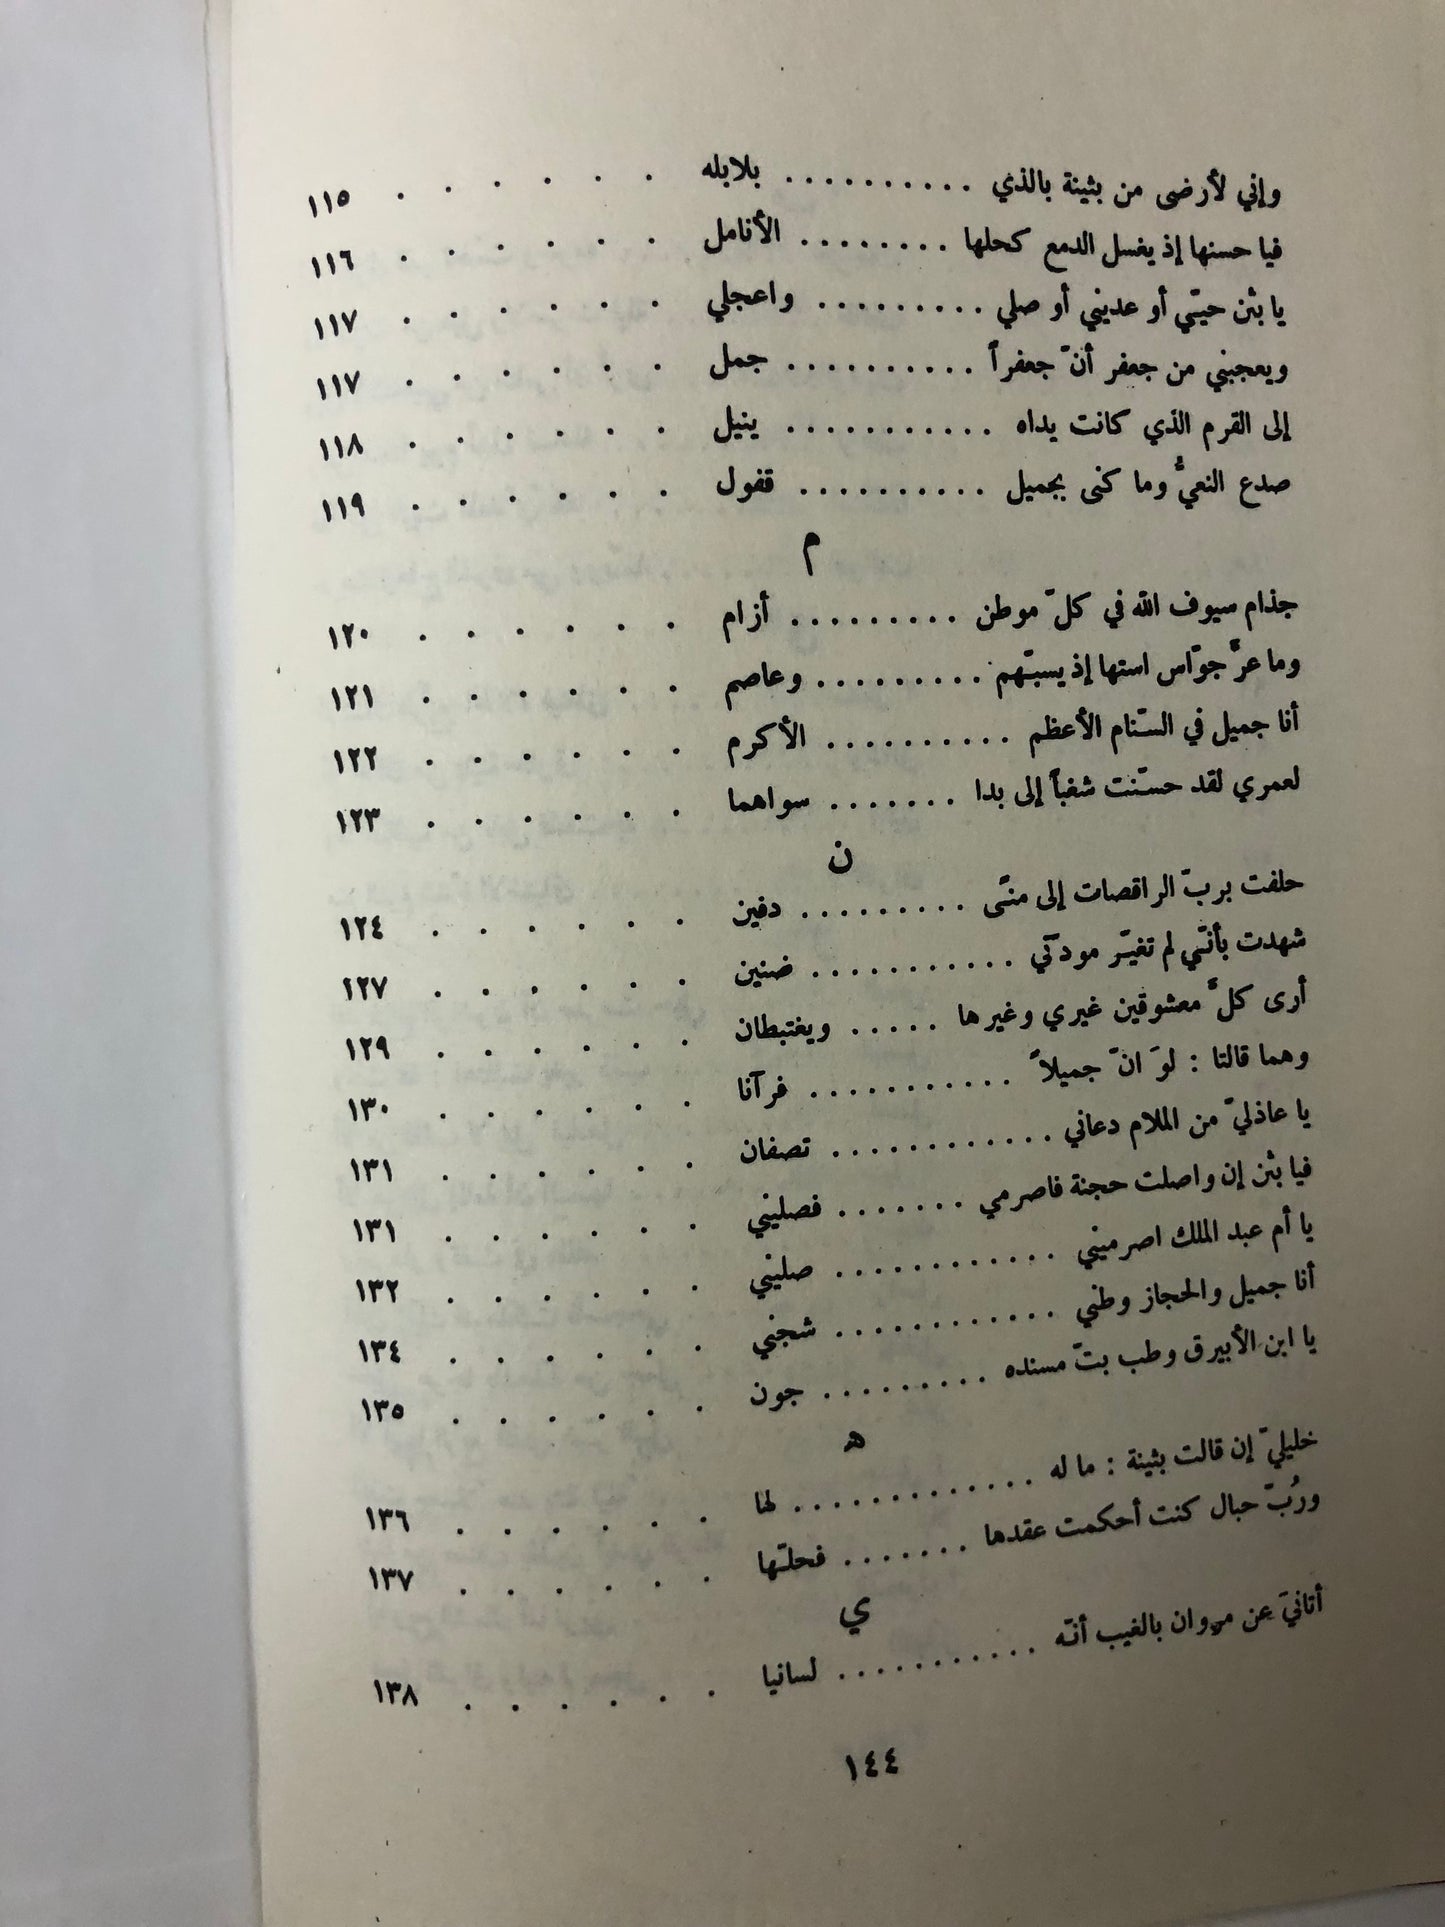 وإني لأرضى من بثينة بالذي . . . . . . . . . . بلابله . . . . . . ١١٥
فيا حسنها إذ يغسل الدمع كحلها . . . . . . . . الأنامل . . . . . . ١١٦
يا بثن حيّي أو عديني أو صلي . . . . . . . . . واعجلي . . . . . . ١١٧
ويعجبني من جعفر أنّ جعفراً . . . . . . . . . . جمل . . . . . . ١١٧
إلى القرم الذي كانت يداه . . . . . . . . . . . ينيل . . . . . . ١١٨
صدع النعيُّ وما كنى بجميل . . . . . . . . . . قفول . . . . . . ١١٩
م
جذام سيوف الله في كلّ موطن . . . . . . . . . أزام . . . . . . ١٢٠
وما عرَّ جوّاس استها إذ يسبّهم . . . . . . . . . وعاصم . . . . . . ١٢١
أنا جميل في السّنام الأعظم . . . . . . . . . . الأكرم . . . . . . ١٢٢
لعمري لقد حسّنت شغباً إلى بدا . . . . . . . سواهما . . . . . . ١٢٣
ن
حلفت بربّ الراقصات إلى منًى . . . . . . . . . دفين . . . . . . ١٢٤
شهدت بأنّي لم تغيّر مودتي . . . . . . . . . . . ضنين . . . . . . ١٢٧
أرى كلَّ معشوقين غيري وغيرها . . . . . ويغتبطان . . . . . . ١٢٩
وهما قالتا : لوَ انّ جميلاً . . . . . . . . . . . فرآنا . . . . . . ١٣٠
يا عاذليّ من الملام دعاني . . . . . . . . . . . . تصفان . . . . . . ١٣١
فيا بثن إن واصلت حجنة فاصرمي . . . . . . . فصليني . . . . . . ١٣١
يا أم عبد الملك اصرميني . . . . . . . . . . . . صليني . . . . . . ١٣٢
أنا جميل والحجاز وطني . . . . . . . . . . . . شجني . . . . . . ١٣٤
يا ابن الأبيرق وطب بتّ مسنده . . . . . . . . . جون . . . . . . ١٣٥
ه
خليليّ إن قالت بثينة : ما له . . . . . . . . . . . . . لها . . . . . . ١٣٦
ورُبّ حبال كنت أحكمت عقدها . . . . . . . فحلّها . . . . . . ١٣٧
ي
أتانيَ عن مروان بالغيب أنّه . . . . . . . . . . . لسانيا . . . . . . ١٣٨
١٤٤